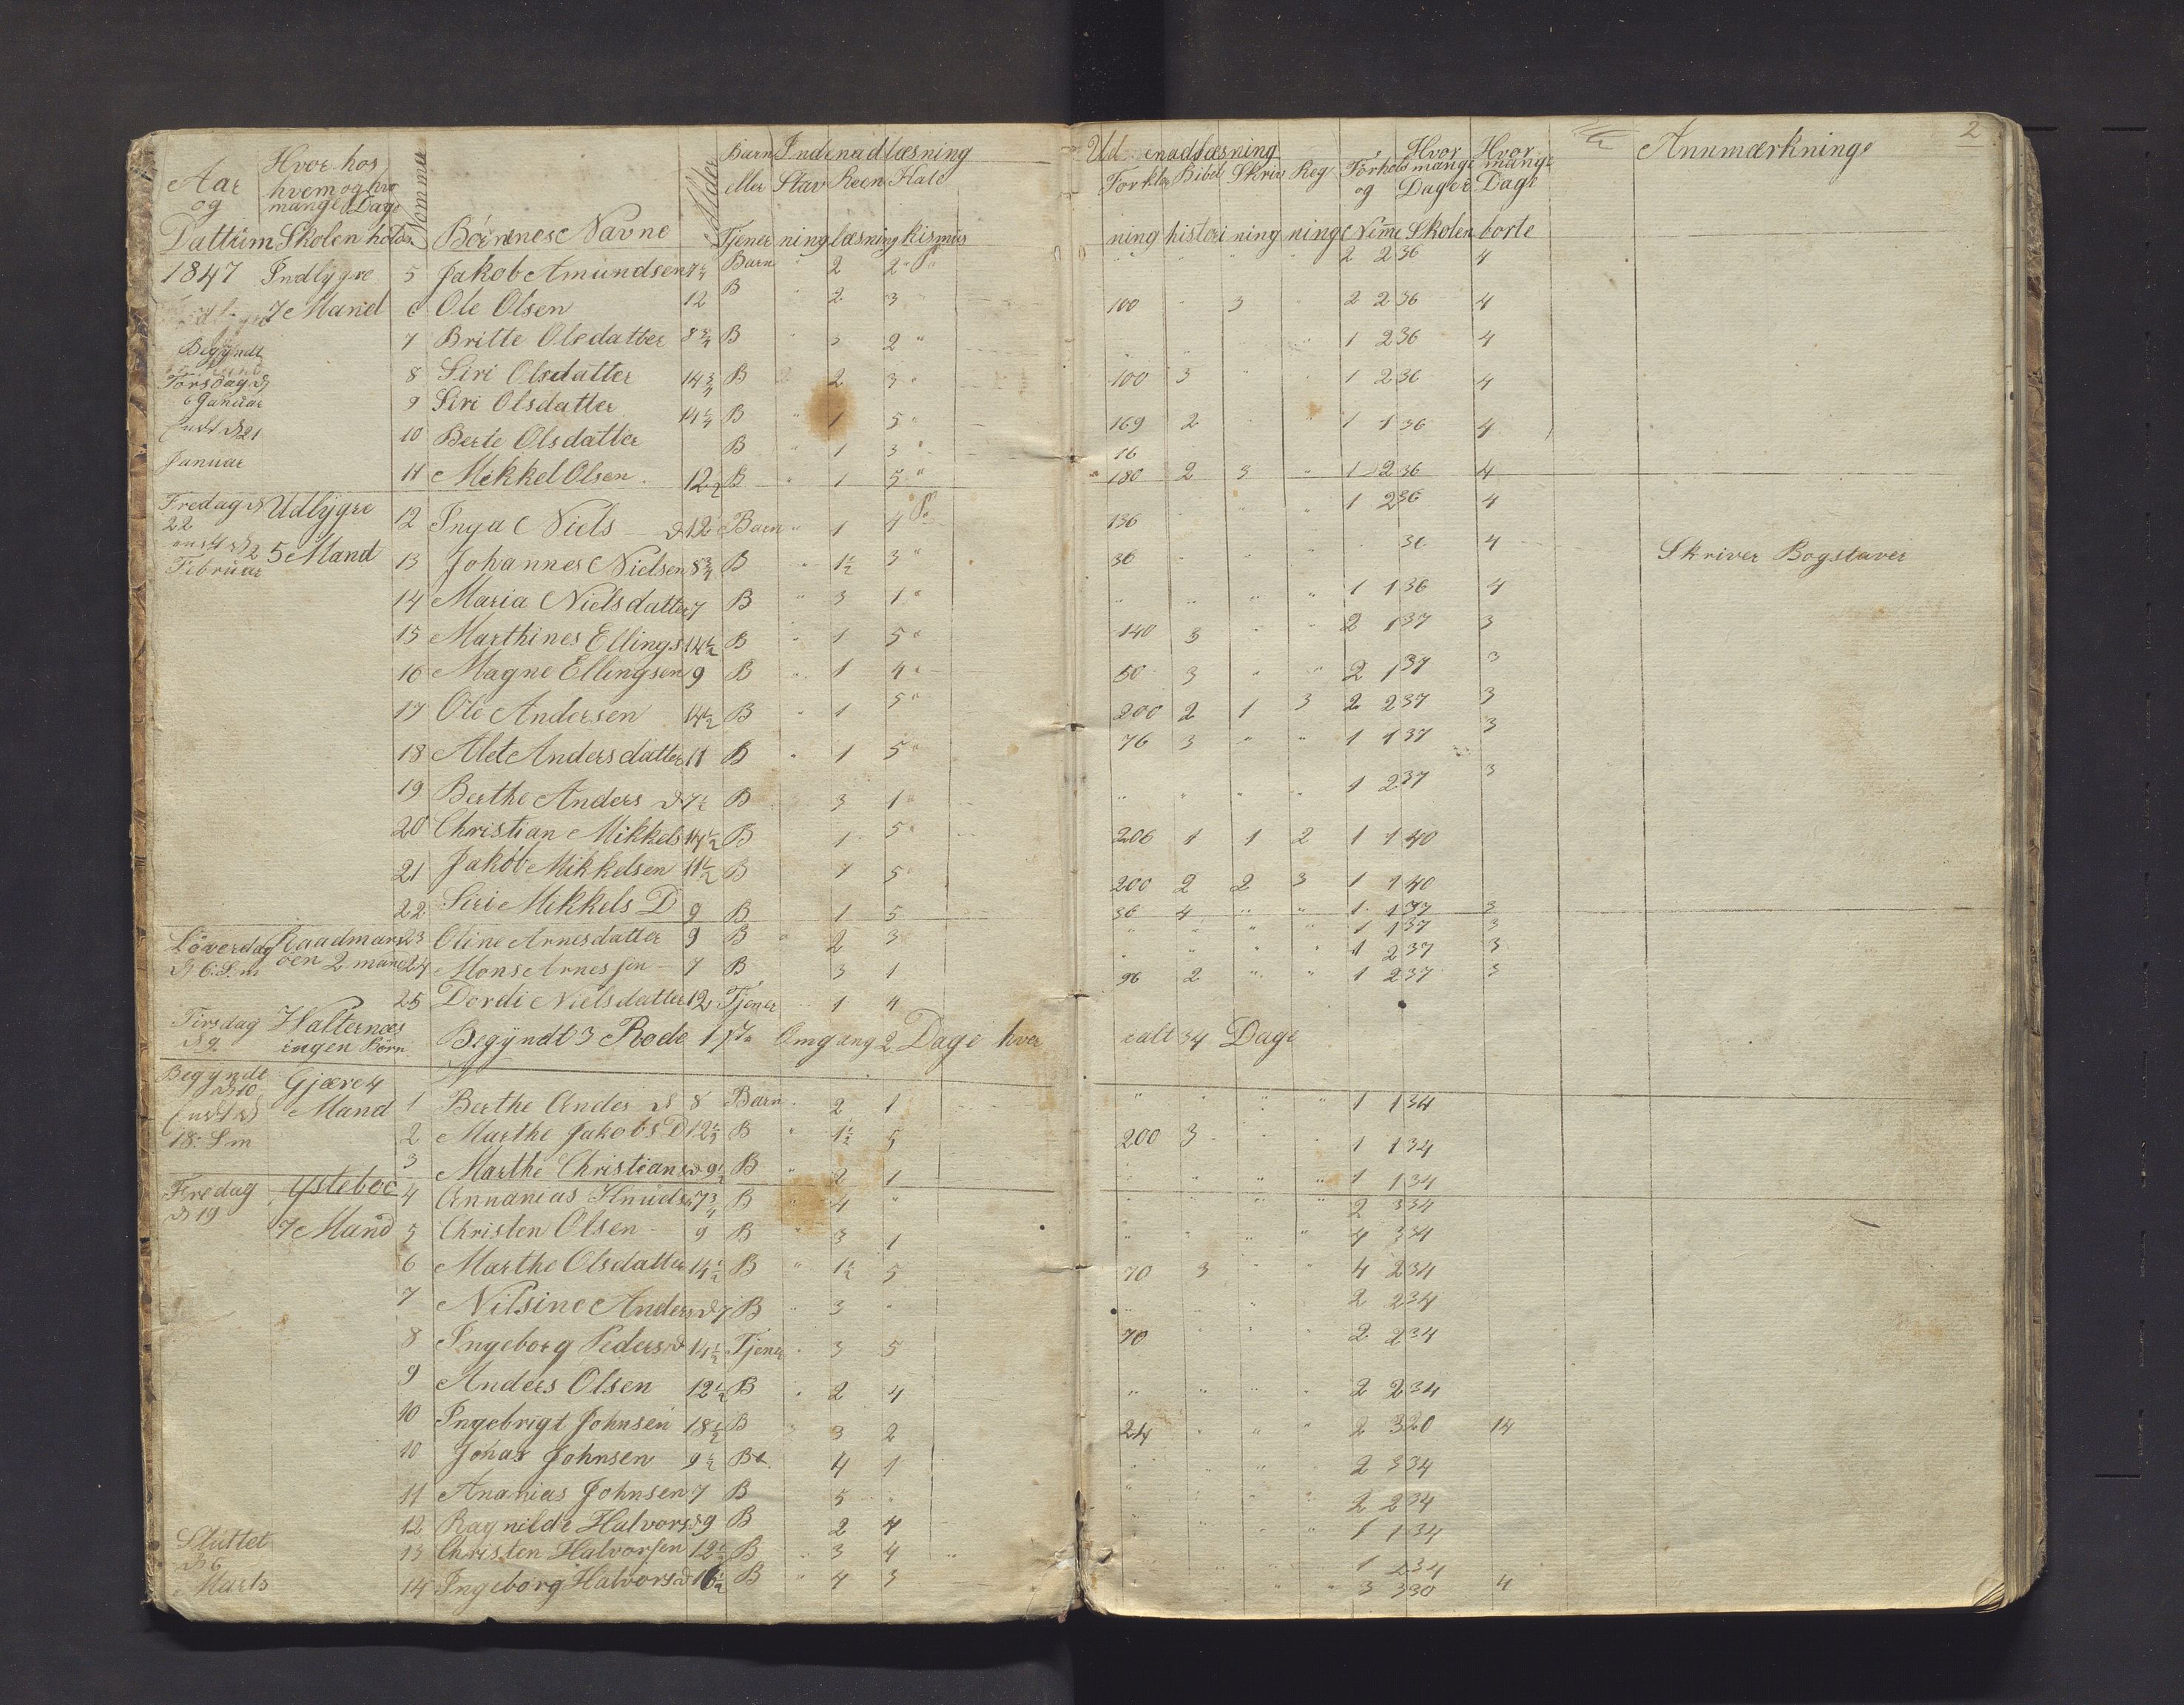 2
Aar og Dattum Hvor hos hvem og hvo mange Dage Skolen hotes Nommer Börnenes Navne Alder Barn eller Tjener Indenadlæsning Stavning Reenlæsning Katekismus Udenadlæsning Forklaring Bibelhistori Skrivning Regning Forhold og Nime Hvor mange Dage i Skolen Hvor mange Dage borte Annmærkninge
1847 Indlygre 5 Jakob Amundsen 7 1/4 Barn " 2 2 " " " " " 2 2 36 4
7 Mand 6 Ole Olsen 12 B 2 3 100 " 3 2 2 36 4
Begyndt 7 Britte Olsdatter 8 3/4 B " 3 2 " 1 2 36 4
Torsdag d 8 Siri Olsdatter 14 3/4 B 2 3 " 100 3 " " 1 2 36 4
6 Januar 9 Siri Olsdatter 14 1/4 B " 1 5 " 169 2 " " 1 1 36 4
d 21 10 Berte Olsdatter B " 1 3 " 16
Januar 11 Mikkel Olsen 12 1/2 B " 1 5 " 180 2 3 " 1 2 36 4
Fredag d 22 Udlygre 12 Inga Niels d 12 Barn " 1 4 136 " " " 1 2 36 4
d 2 Februar 5 Mand 13 Johannes Nielsen 8 3/4 B " 1 1/2 3 " 36 " " " 36 4 Skriver Bogstaver
14 Maria Nielsdatter 7 B " 3 1 " " " " " 1 1 36 4
15 Marthines Ellings 14 1/2 B " 1 5 " 140 3 " " 2 1 37 3
16 Magne Ellingsen 9 B " 1 4 " 50 3 " " 2 1 37 3
17 Ole Andersen 14 1/2 B " 1 5 " 200 2 1 3 2 2 37 3
18 Alet Andersdatter 11 B " 1 5 " 76 3 " " 1 1 37 3
19 Berthe Anders d 7 1/2 B 3 1 " " " " " 1 2 37 3
20 Christian Mikkels 14 1/2 B 1 5 " 206 1 1 2 1 1 40
21 Jakob Mikkelsen 11 1/2 B 1 5 " 200 2 2 3 1 1 40
22 Siri Mikkels D 9 B 1 5 36 4 " " 1 1 37 3
Löverdag Raadmans 23 Oline Arnesdatter 9 B " 2 3 " " " " 1 1 37 3
d 6. S.m. öen 2 mand 24 Mons Arnessen 7 B 3 1 " " " " 1 2 37 3
25 Dordi Nielsdatter 12 Tjener 1 4 96 2 " " 1 2 37 3
Tirsdag d 9 Halternes ingen Börn Begyndt 3 Rode 1ste Omgang 2 Dage hver ialt 34 Dage
Begyndt d 10 Gjære 4 Mand 1 Berthe Anders d 8 Barn " 2 1 " " " " 1 1 34
18. S.m 2 Marthe Jakobs D 12 1/2 B " 1 1/2 5 200 3 " " 1 1 34
3 Marthe Christians d 9 1/2 B " 2 1 " " " " 1 1 34
Fredag d 19 Ysteboe 4 Annanias Knuds 7 3/4 B " 4 " " " " " 2 3 34
7 Mand 5 Christen Olsen 9 B " 3 1 " " " " 4 3 34
6 Marthe Olsdatter 14 1/2 B " 1 1/2 5 70 3 " " 4 2 34
7 Nilsine Anders d 7 B " 3 " " " " 2 2 34
8 Ingeborg Peders d 14 1/2 Tjener " 3 5 70 " " " 2 2 34
9 Anders Olsen 12 1/2 B " 2 4 " " " " 2 2 34
10 Ingebrigt Johnsen 18 1/2 B 3 2 24 " " " 2 3 20 14
10 Jonas Johnsen 9 1/2 B 4 1 " " " 2 3 34
11 Ananias Johnsen 7 B 5 " " " " " 2 2 34
12 Ragnilde Halvors d 9 B 2 4 " " " " 1 1 34
Sluttet 13 Christen Halvorsen 12 1/2 B " 3 4 " " " 1 2 34
d 6 Marts 14 Ingeborg Halvors d 16 1/2 B " 4 3 " " 3 3 30 4